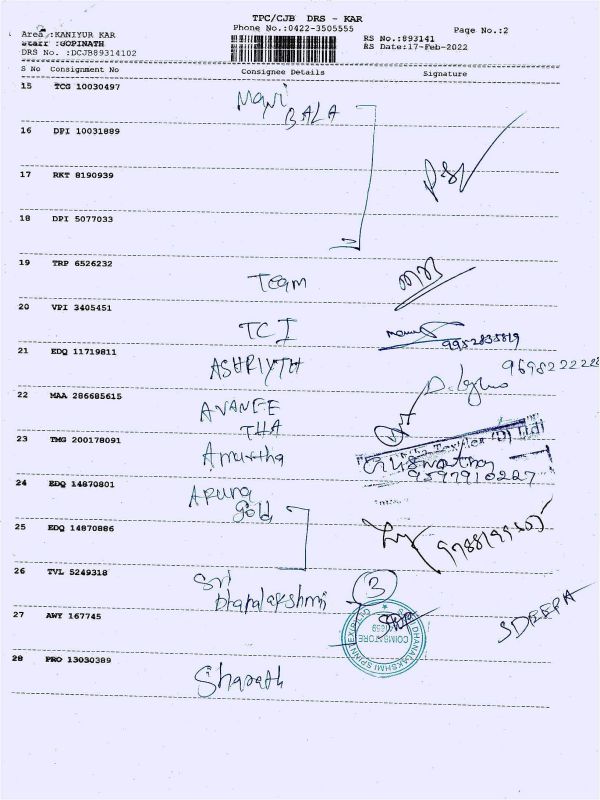 TPC/CJB DRS - KAR
Phone No.:0422-3505555
Page No.:2
Area :KANIYUR KAR
Staff :GOPINATH
DRS No. :DCJB89314102
RS No.:893141
RS Date:17-Feb-2022
S No Consignment No Consignee Details Signature
15 TCG 10030497
BALA
16 DPI 10031889
17 RKT 8190939
18 DPI 5077033
19 TRP 6526232
Team
20 VPI 3405451
TCI
9952835819
21 EDQ 11719811
ASHRIYTH
9698222228
22 MAA 286685615
AVANEE
THA
23 TMG 200178091
Amurtha
9597910227
24 EDQ 14870801
Aruna
gold
25 EDQ 14870886
26 TVL 5249318
Sri
Dhanalakshmi
3
27 AWY 167745
SDEEPA
DHANALAKSHMI SPINN
COIMBATORE
28 PRO 13030389
Sharath